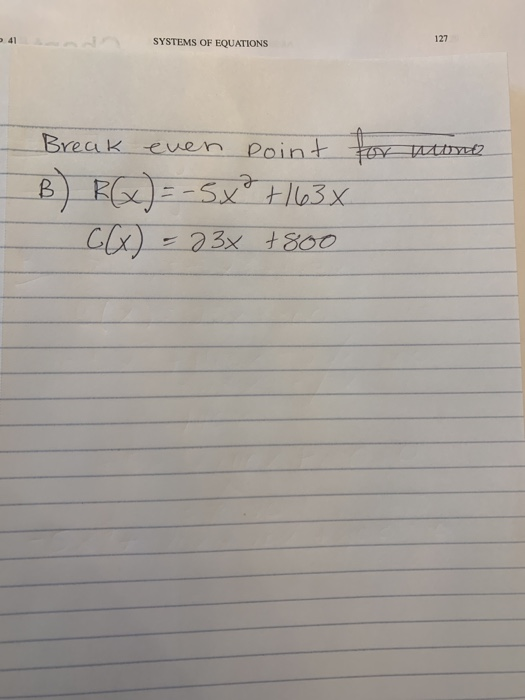 41 SYSTEMS OF EQUATIONS 127
Break even point for more
B) R(x) = -5x² + 163x
C(x) = 23x + 800